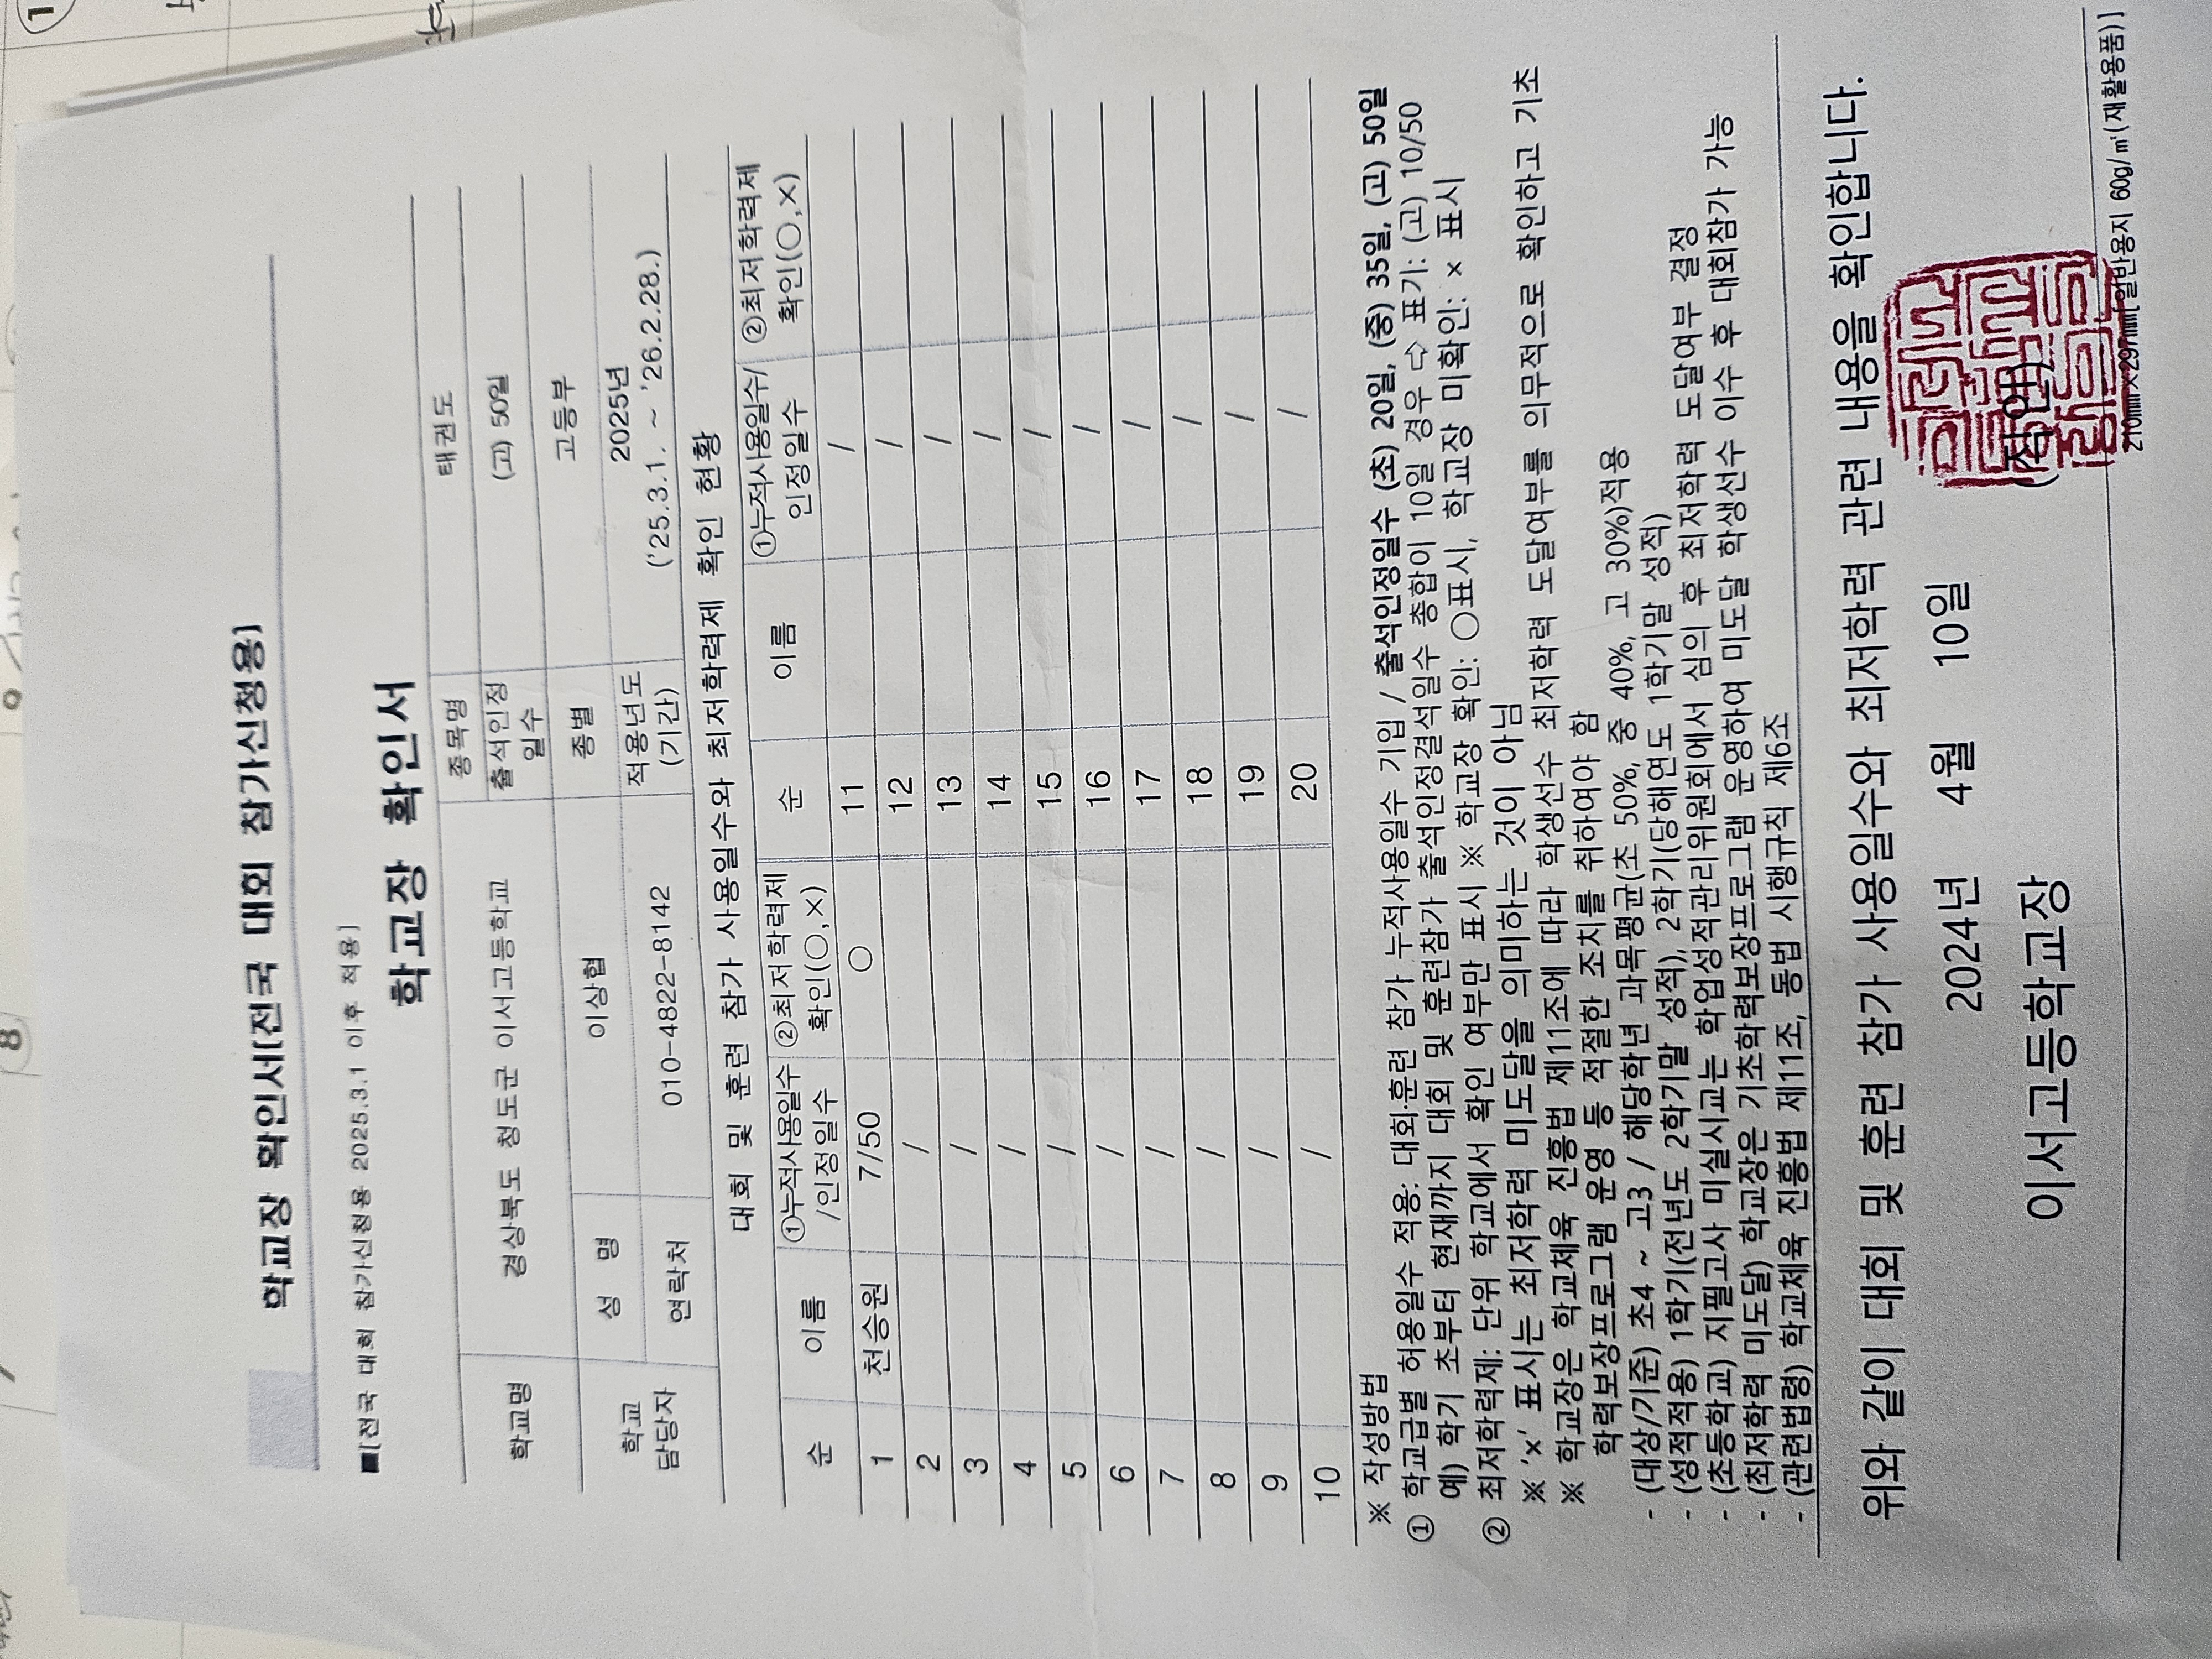 학교장 확인서[전국 대회 참가신청용]
■[전국 대회 참가신청용 2025.3.1 이후 적용]
학교장 확인서
학교명 경상북도 청도군 이서고등학교 종목명 태권도
출석인정 일수 (고) 50일
학교 담당자 성 명 이상협 종별 고등부
연락처 010-4822-8142 적용년도 (기간) 2025년 ('25.3.1. ~ '26.2.28.)
대회 및 훈련 참가 사용일수와 최저학력제 확인 현황
순 이름 ①누적사용일수 /인정일수 ②최저학력제 확인(○,×) 순 이름 ①누적사용일수/ 인정일수 ②최저학력제 확인(○,×)
1 천승원 7/50 ○ 11 /
2 / 12 /
3 / 13 /
4 / 14 /
5 / 15 /
6 / 16 /
7 / 17 /
8 / 18 /
9 / 19 /
10 / 20 /
※ 작성방법
① 학교급별 허용일수 적용: 대회·훈련 참가 누적사용일수 기입 / 출석인정일수 (초) 20일, (중) 35일, (고) 50일
예) 학기 초부터 현재까지 대회 및 훈련참가 출석인정결석일수 총합이 10일 경우 ⇨ 표기: (고) 10/50
② 최저학력제: 단위 학교에서 확인 여부만 표시 ※ 학교장 확인: ○표시, 학교장 미확인: × 표시
※ 'x' 표시는 최저학력 미도달을 의미하는 것이 아님
※ 학교장은 학교체육 진흥법 제11조에 따라 학생선수 최저학력 도달여부를 의무적으로 확인하고 기초
학력보장프로그램 운영 등 적절한 조치를 취하여야 함
- (대상/기준) 초4 ~ 고3 / 해당학년 과목평균(초 50%, 중 40%, 고 30%)적용
- (성적적용) 1학기(전년도 2학기말 성적), 2학기(당해연도 1학기말 성적)
- (초등학교) 지필고사 미실시교는 학업성적관리위원회에서 심의 후 최저학력 도달여부 결정
- (최저학력 미도달) 학교장은 기초학력보장프로그램 운영하여 미도달 학생선수 이수 후 대회참가 가능
- (관련법령) 학교체육 진흥법 제11조, 동법 시행규칙 제6조
위와 같이 대회 및 훈련 참가 사용일수와 최저학력 관련 내용을 확인합니다.
2024년 4월 10일
이서고등학교장 (직인)
210㎜×297㎜[일반용지 60g/㎡(재활용품)]